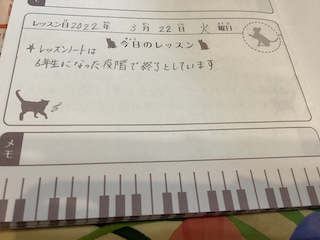 レッスン日 2022年 3月 22日 火曜日
今日のレッスン
★レッスンノートは
6年生になった段階で終了としています
メモ